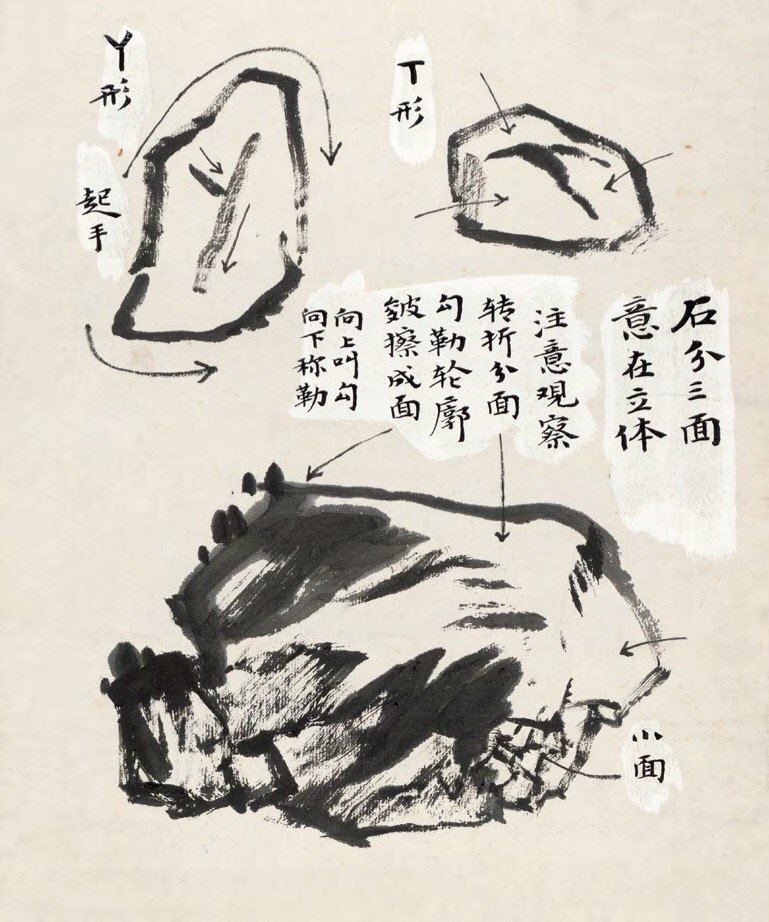 丫形
起手
丁形
石分三面
意在立体
注意观察
转折分面
勾勒轮廓
皴擦成面
向上叫勾
向下称勒
小面